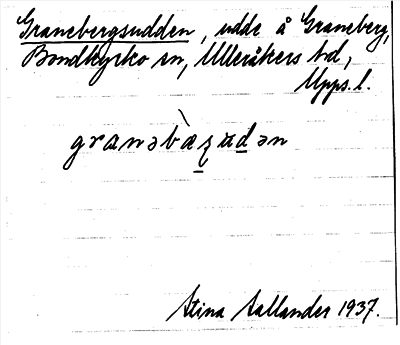 Granebergsudden, udde å Graneberg,
Bondkyrko sn, Ulleråkers hd,
Upps. l.
granəbæ̀ʒu̇dən
Stina Sallander 1937.